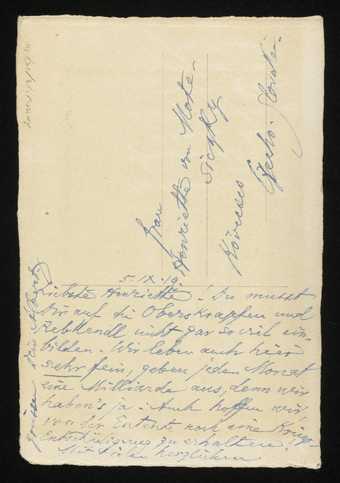 Frau
Henriette von Motesiczky
Köröses
Czecho-Slovakei
5. IX. 19.
Liebste Henriette! Du musst
Dir auf die Oberskrapfen und
Rebhendl nicht gar so viel ein-
bilden. Wir leben auch hier
sehr fein, geben jeden Monat
eine Milliarde aus, denn wir
haben's ja. Auch hoffen wir
von der Entente noch eine Kriegs-
Entschädigung zu erhalten!
Mit vielen herzlichen